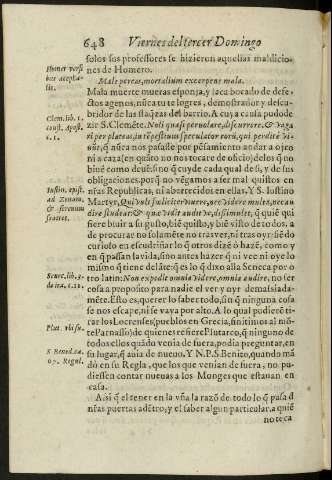 648 Viernes del tercer Domingo
solos sus professores se hizieron aquellas maldicio-
nes de Homero.
Homer. versi
bus acepha-
lis.
Male pereas, mortalium excerpens mala.
Mala muerte mueras esponja, y saca bocado de defe-
ctos agenos, nũca tu te logres, demostrador, y descu-
bridor de las flaq̃zas del barrio. A cuya causa pudo de
zir S. Clemẽte. Noli quasi pervolare, discurrere, & vaga
Clem. lib. 1.
const. Apost.
c. 1.
ri per plateas, intẽpestivus speculator eorũ, qui perditè vi-
vũt, q̃ nunca nos passasse por pẽsamiento andar a ojeo
ni a caza (en quãto no nos tocare de oficio) de los q̃ no
biuẽ como deuẽ, sino q̃ cuyde cada qual de si, y de sus
obligaciones, por q̃ no vẽgamos a ser mal quistos en
nr̃as Republicas, ni aborrecidos en ellas. Y S. Iustino
Iustin. epist.
ad Zenam,
& serenum
fratres.
Martyr, Qui vult feliciter vivere, nec videre multa, nec au
dire studeat: & quæ vidit audivitve, dissimulet, q̃ quiẽ qui
siere biuir a su gusto, biẽ quisto, y biẽ visto de todos, a
de procurar no solamẽte no trauer, ni tras oyr: hẽ do
curioso en escudriñar lo q̃ otros dizẽ ò hazẽ, como y
en q̃ passan la vida, sino antes hazer q̃ ni vee ni oye lo
mismo q̃ tiene delãte: q̃ es lo q̃ dixo alla Seneca por o
tro latin: Non expedit omnia videre, omnia audire. no ser
Senec. lib. 3.
de ira. c. 11.
cosa a proposito para nadie el ver y oyr demasiada-
mẽte. Esto es, querer lo saber todo, sin q̃ ninguna cosa
se nos escape, ni se vaya por alto. A lo qual pudierẽ ti-
rar los Locrenses, pueblos en Grecia, finitimos al mõ-
te Parnasso) de quienes refiere Plutarco, q̃ ninguno de
Plut. vbi su.
todos ellos quãdo venia de fuera, podia preguntar, en
su lugar, q̃ auia de nueuo. Y N. P. S. Benito, quando mã
S. Bened. ca.
67. Regul.
dò en su Regla, que los que venian de fuera, no pu-
diessen contar nueuas a los Monges que estauan en
casa.
Assi q̃ el tener en la vña la razõ de todo lo q̃ passa d
nr̃as puertas adẽtro, y el saber algun particular. a quiẽ
no teca